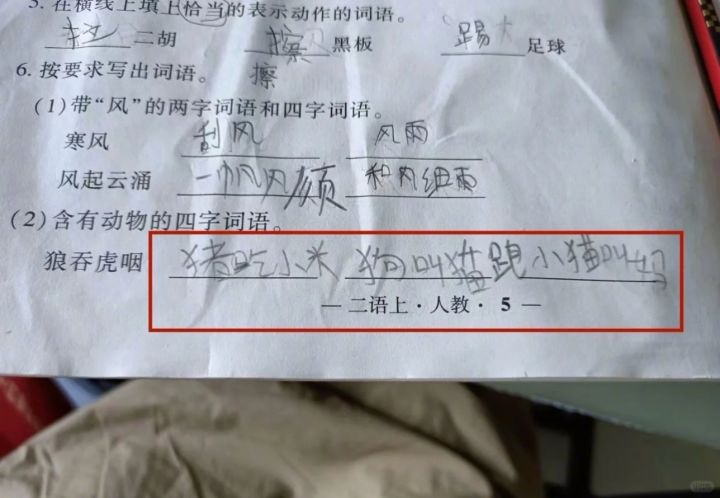 5. 在横线上填上恰当的表示动作的词语。
二胡 擦 黑板 踢 足球
6. 按要求写出词语。 擦
(1)带“风”的两字词语和四字词语。
寒风 刮风 风雨
风起云涌 一帆风顺 和风细雨
(2)含有动物的四字词语。
狼吞虎咽 猪吃小米 狗叫猫跑小猫叫妈
— 二语上·人教·5 —